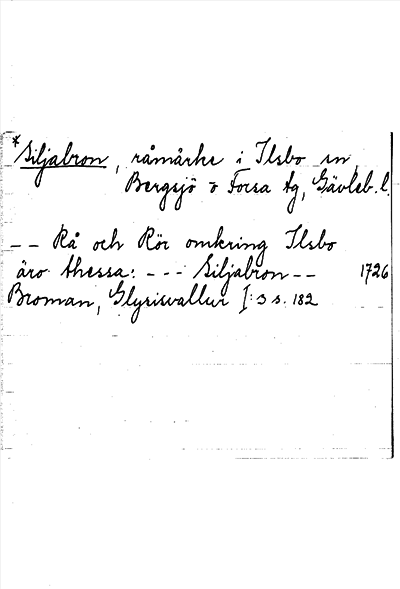 *Siljabron, råmärke i Ilsbo sn,
Bergsjö o Forsa tg, Gävleb. l.
-- Rå och Rör omkring Ilsbo
äro thessa: --- Siljabron -- 1726
Broman, Glysisvallur I:3 s. 182